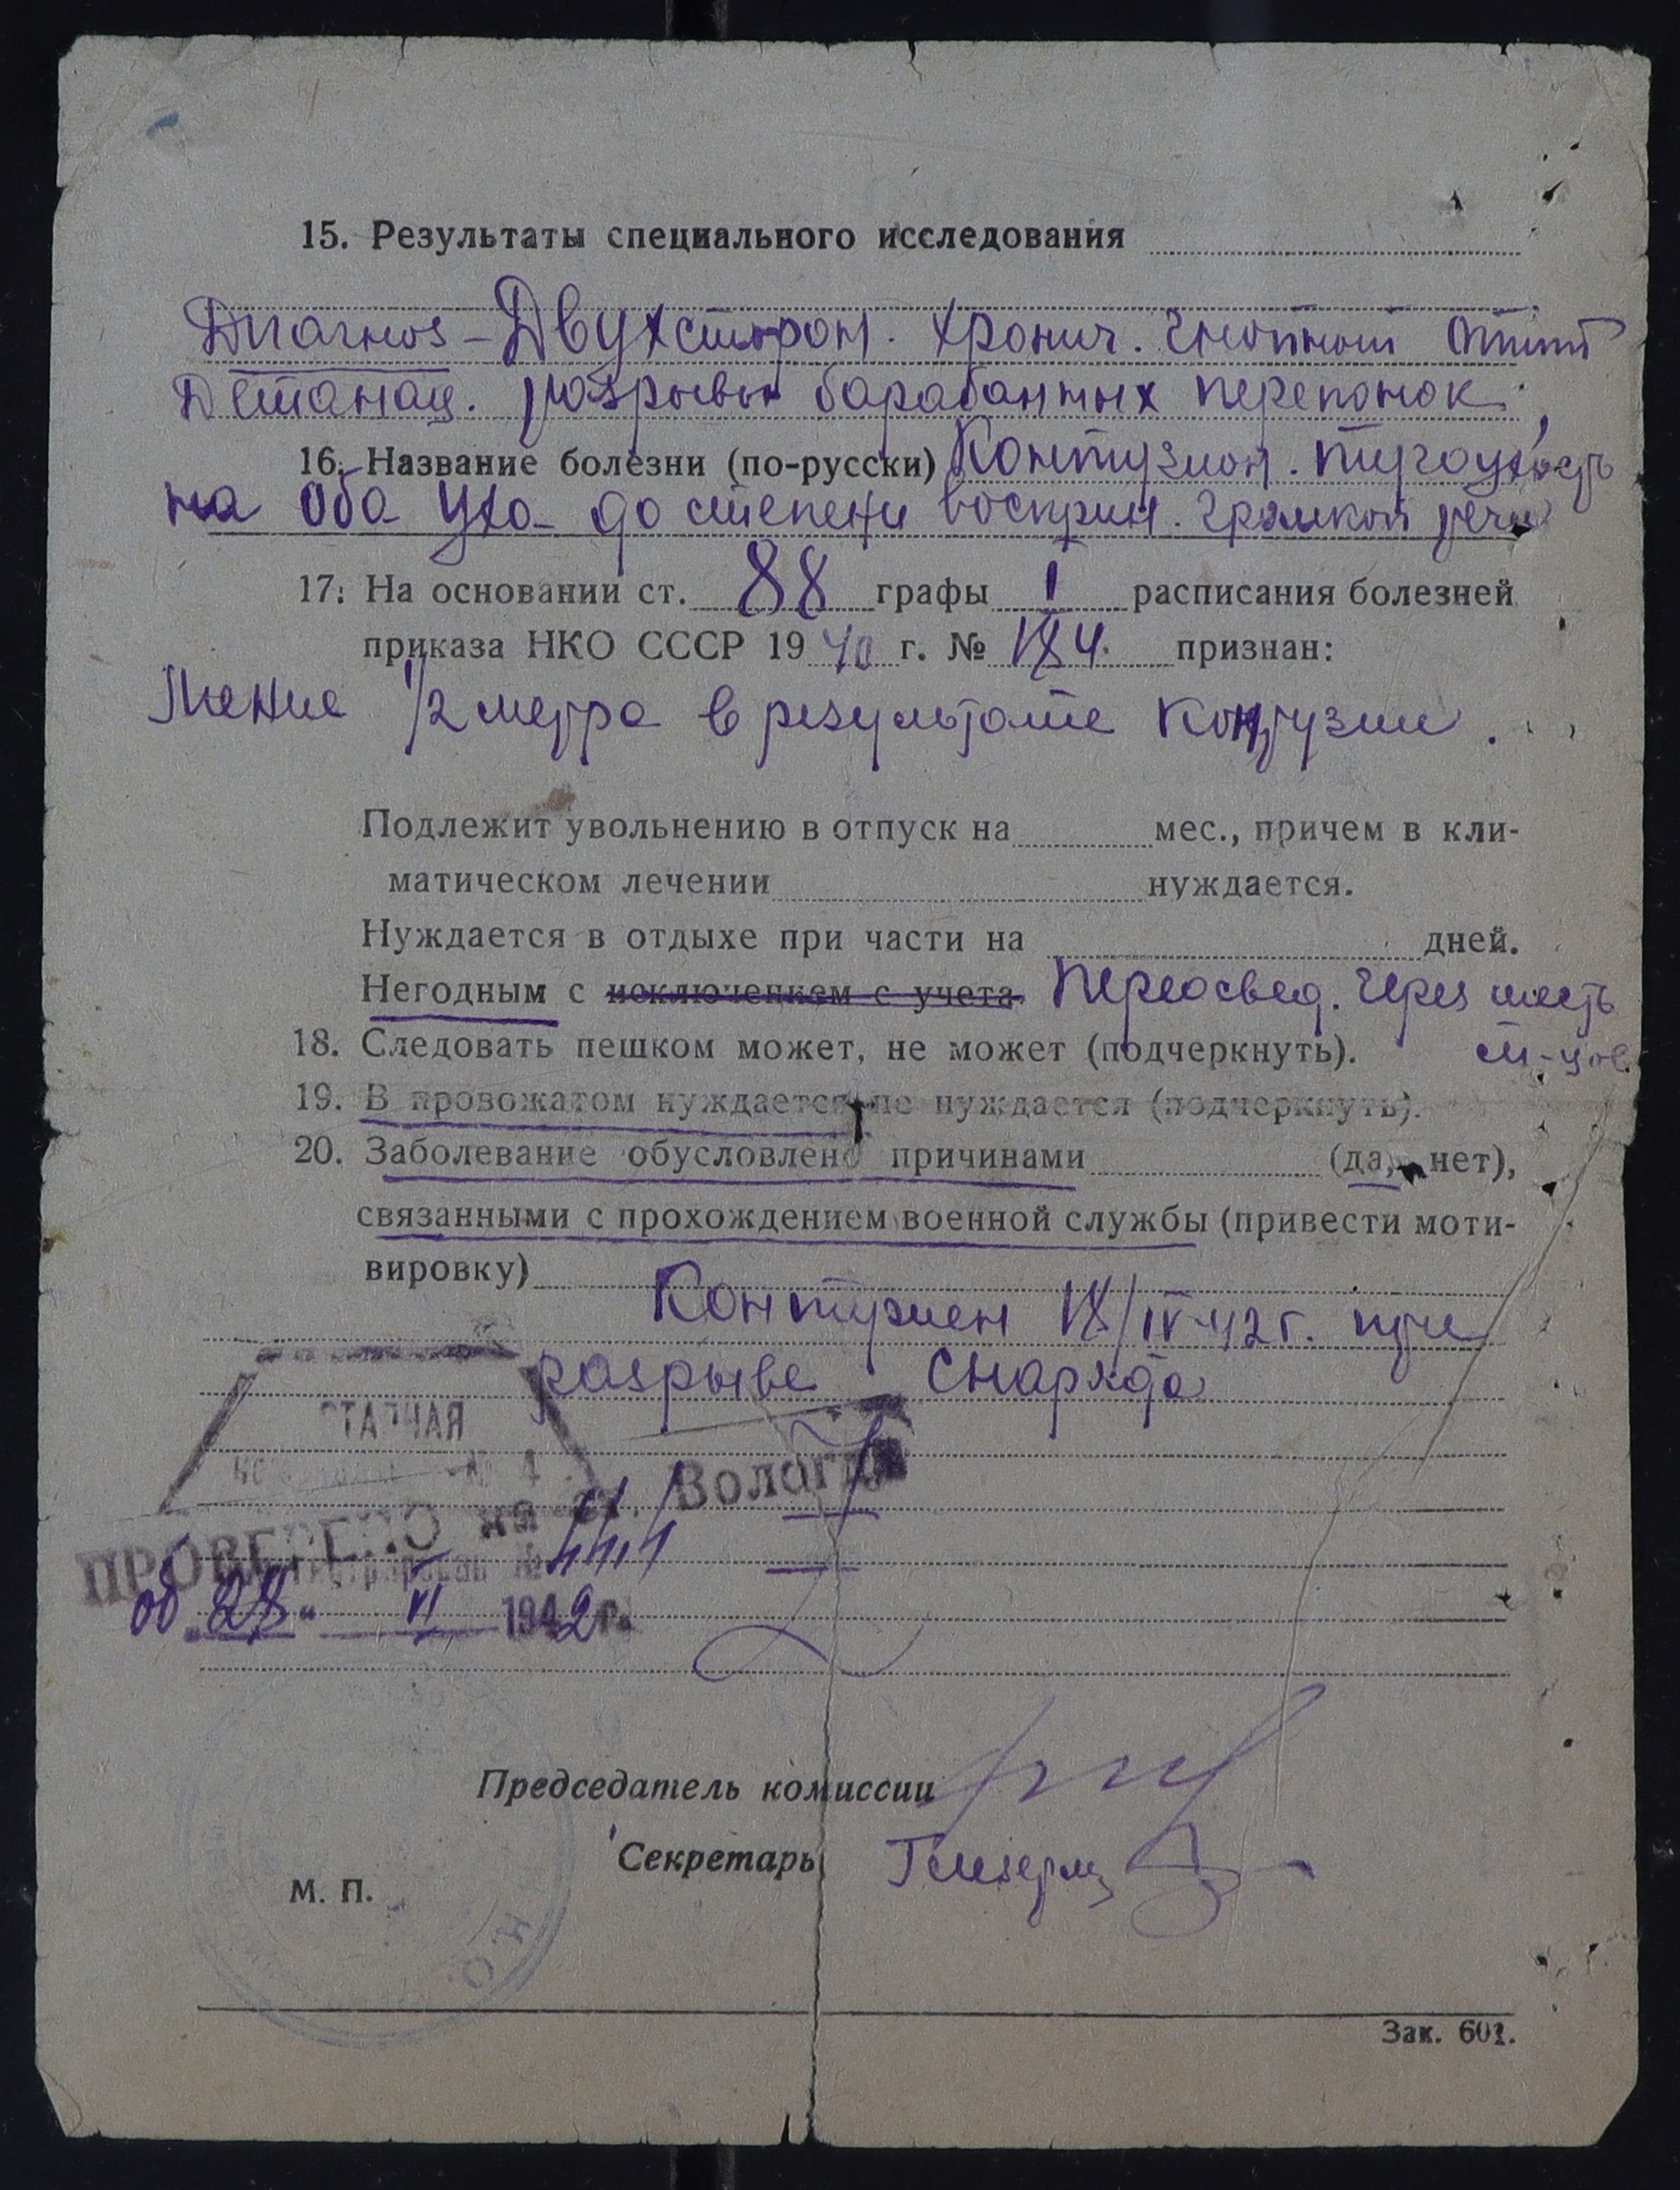 15. Результаты специального исследования
Диагноз – Двухсторон. хронич. гнойный отит
Детонац. разрывы барабанных перепонок.
16. Название болезни (по-русски) Контузион. тугоухость
на оба уха до степени восприн. громкой речи
17. На основании ст. 88 графы I расписания болезней
приказа НКО СССР 1940 г. № 184 признан:
1/2 метра в результате контузии.
Подлежит увольнению в отпуск на мес., причем в кли-
матическом лечении нуждается.
Нуждается в отдыхе при части на дней.
Негодным с исключением с учета. Переосвед. через шесть
18. Следовать пешком может, не может (подчеркнуть). м-цев
19. В провожатом нуждается, не нуждается (подчеркнуть).
20. Заболевание обусловлено причинами (да, нет),
связанными с прохождением военной службы (привести моти-
вировку)
Контужен 18/IV-42 г. при
разрыве снаряда
ПРОВЕРЕНО на ст. Вологда
об „28“ VI 1942 г.
Председатель комиссии
Секретарь
М. П.
Н.К.О.
Зак. 601.